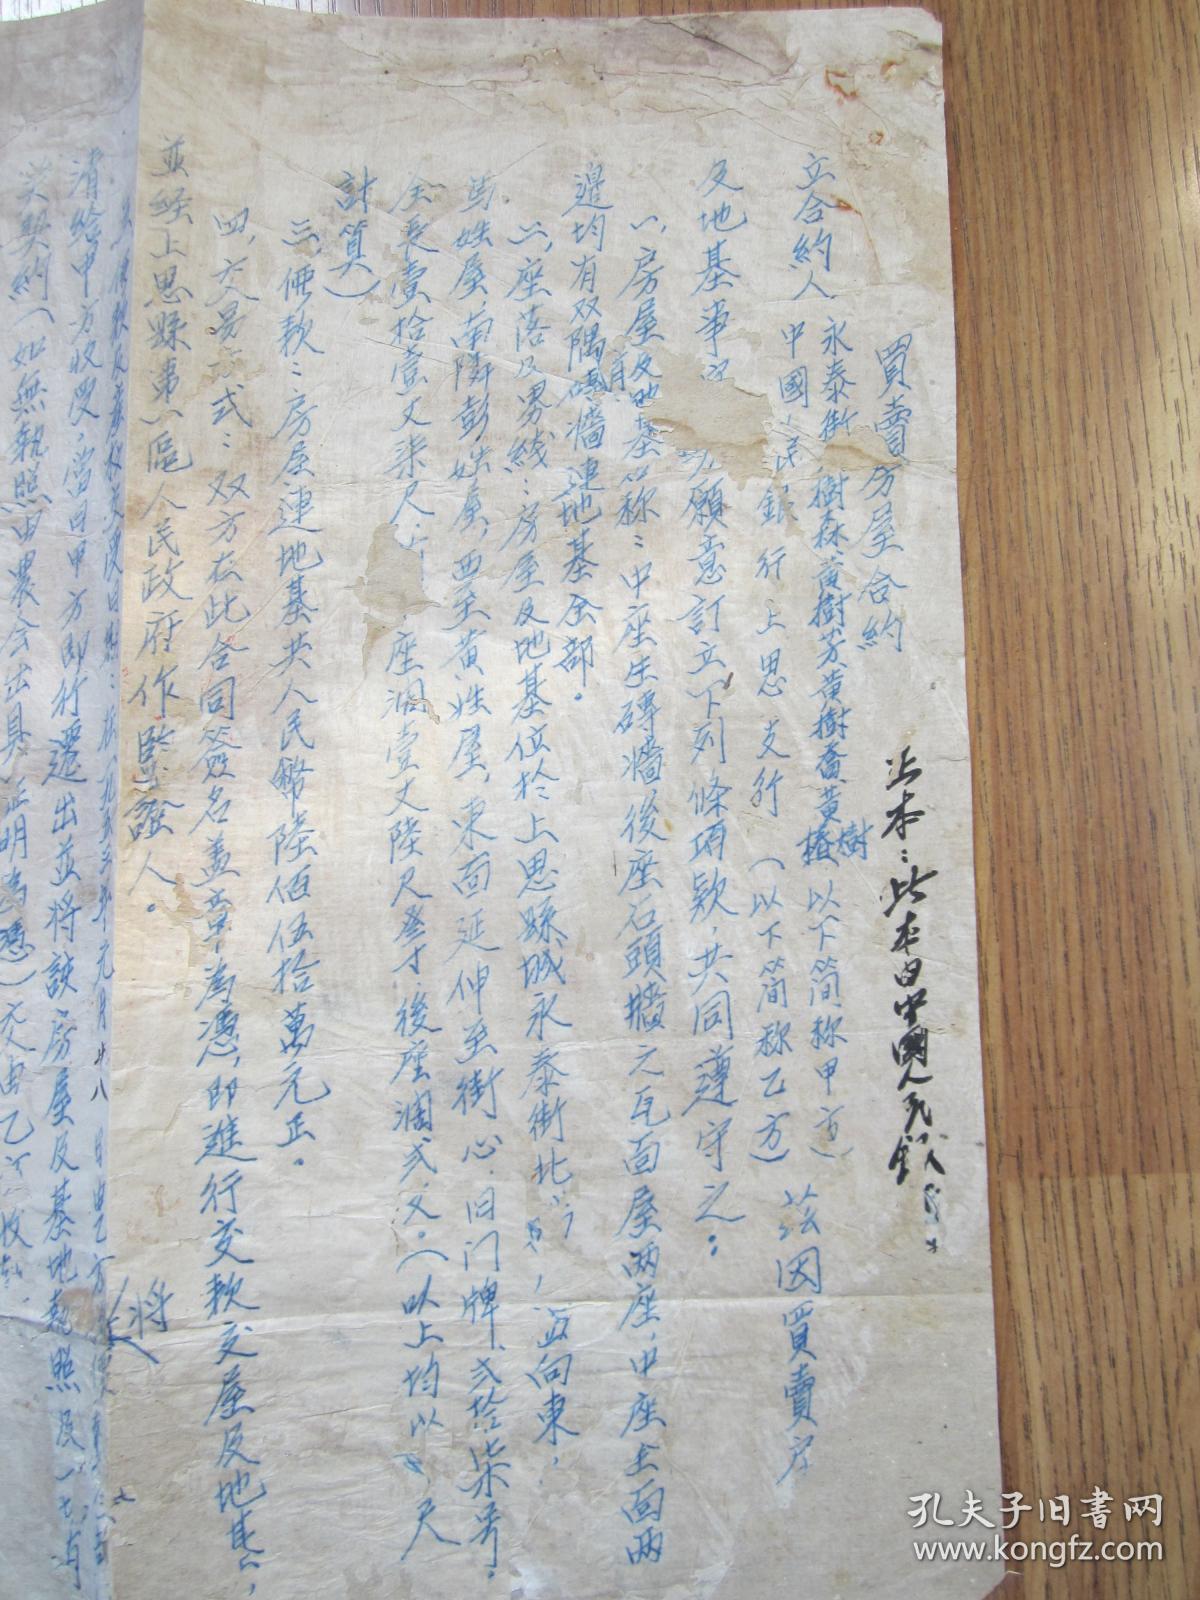 正本：此本由中國人民銀
買賣房屋合約
立合約人 永泰街 樹森黃樹芳黃樹蕃黃樹椿 以下简称甲方）
中國人民銀行上思支行 （以下简称乙方） 茲因買賣房
及地基事 願意訂立下列條項欵，共同遵守之。
一、房屋及地基名称：中座生磚墙，後座石頭牆之瓦面屋兩座，中座全面兩
邊均有双隅磚牆連地基全部。
二、座落及界綫：房屋及地基位於上思縣城永泰街北 ，面向東，
馬姓屋，南隣彭姓屋，西至黃姓屋，東面延伸至街心，旧门牌弍拾柒号。
全長壹拾壹丈柒尺 座濶壹丈陸尺 後座濶弍丈。（以上均以 尺
計算）
三、価款：房屋連地基共人民幣陸佰伍拾萬元正。
四、交易方式：双方在此合同簽名盖章為憑，即進行交款交屋及地基，
並經上思縣第一區人民政府作監證人。
將
清給甲方收受，當日甲方即行遷出並將該房屋及基地執照及一切有
关契約（如無執照由農会出具証明為憑）交由乙方收執
孔夫子旧书网
www.kongfz.com